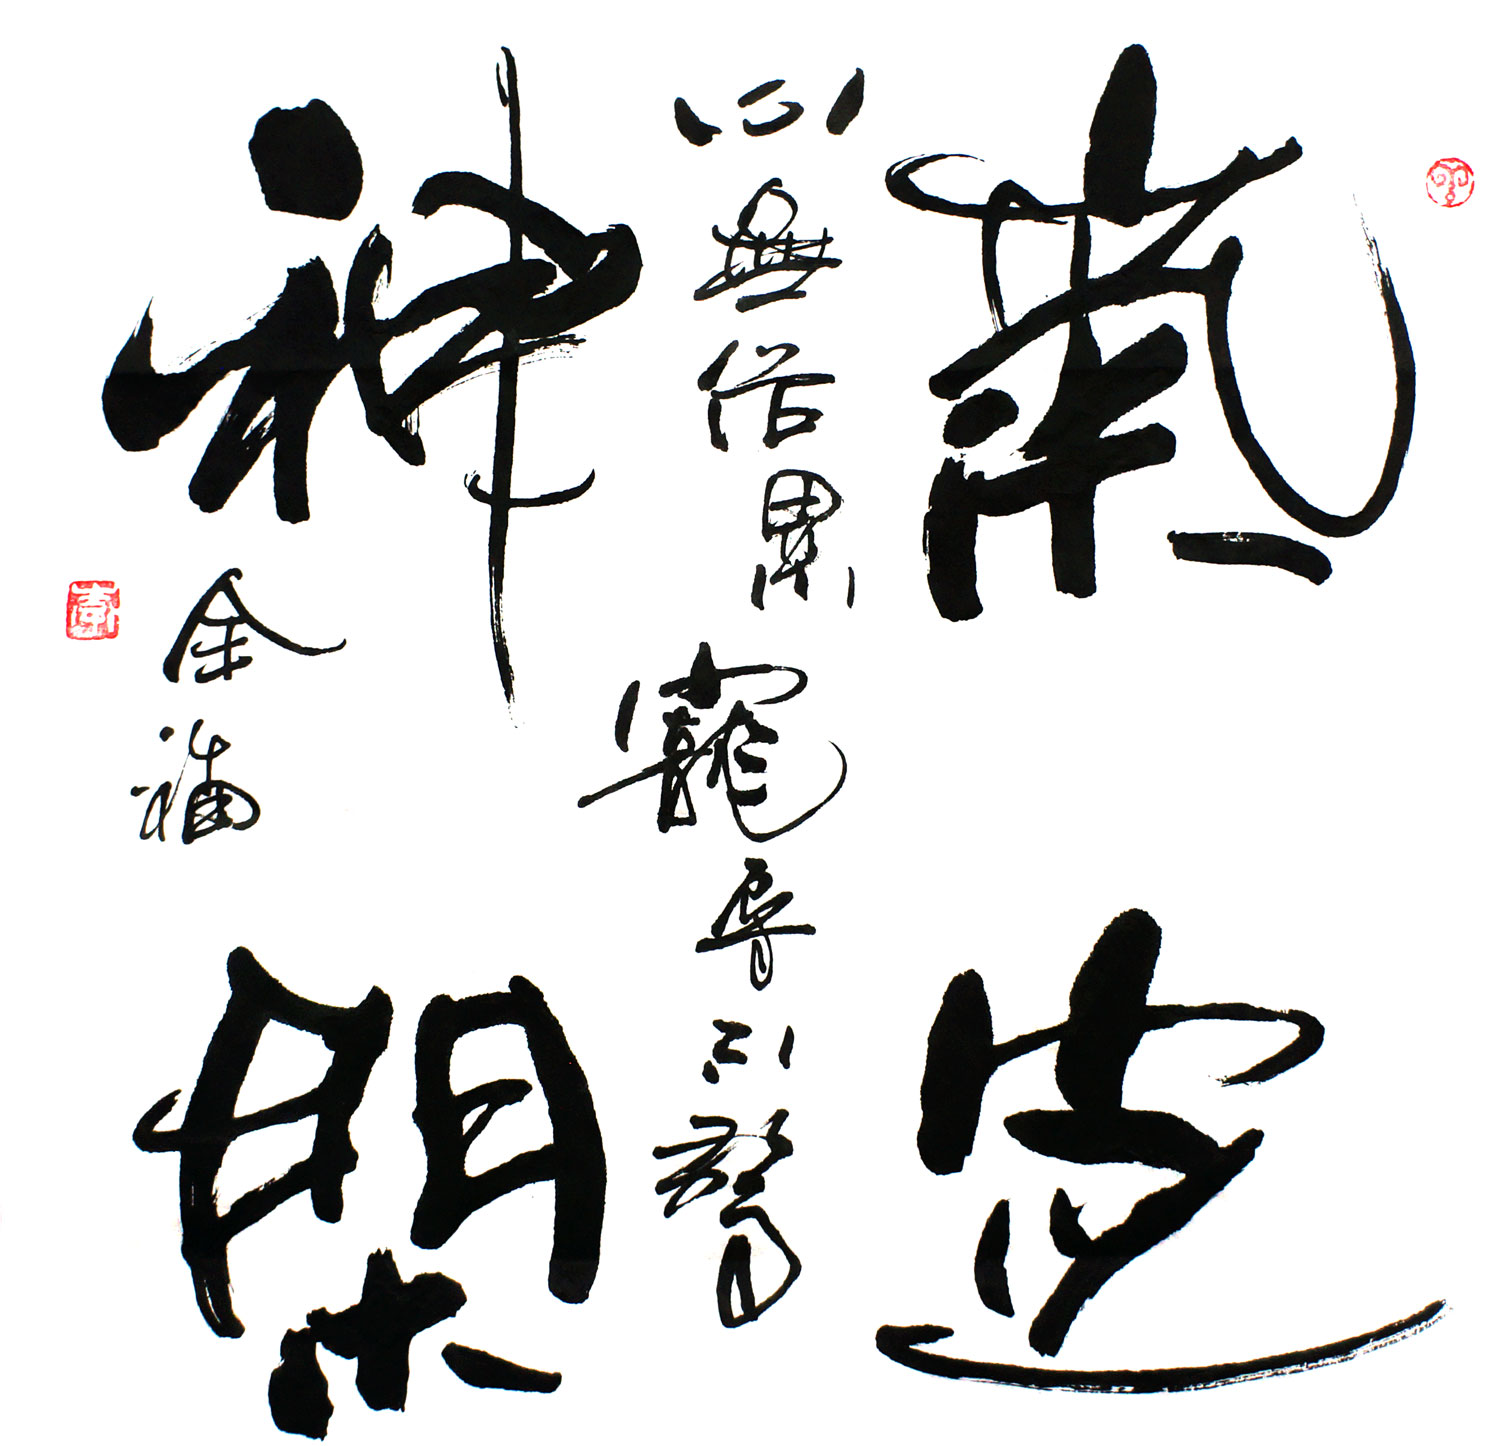 氣定
心無俗累寵辱不驚
神閑
金福